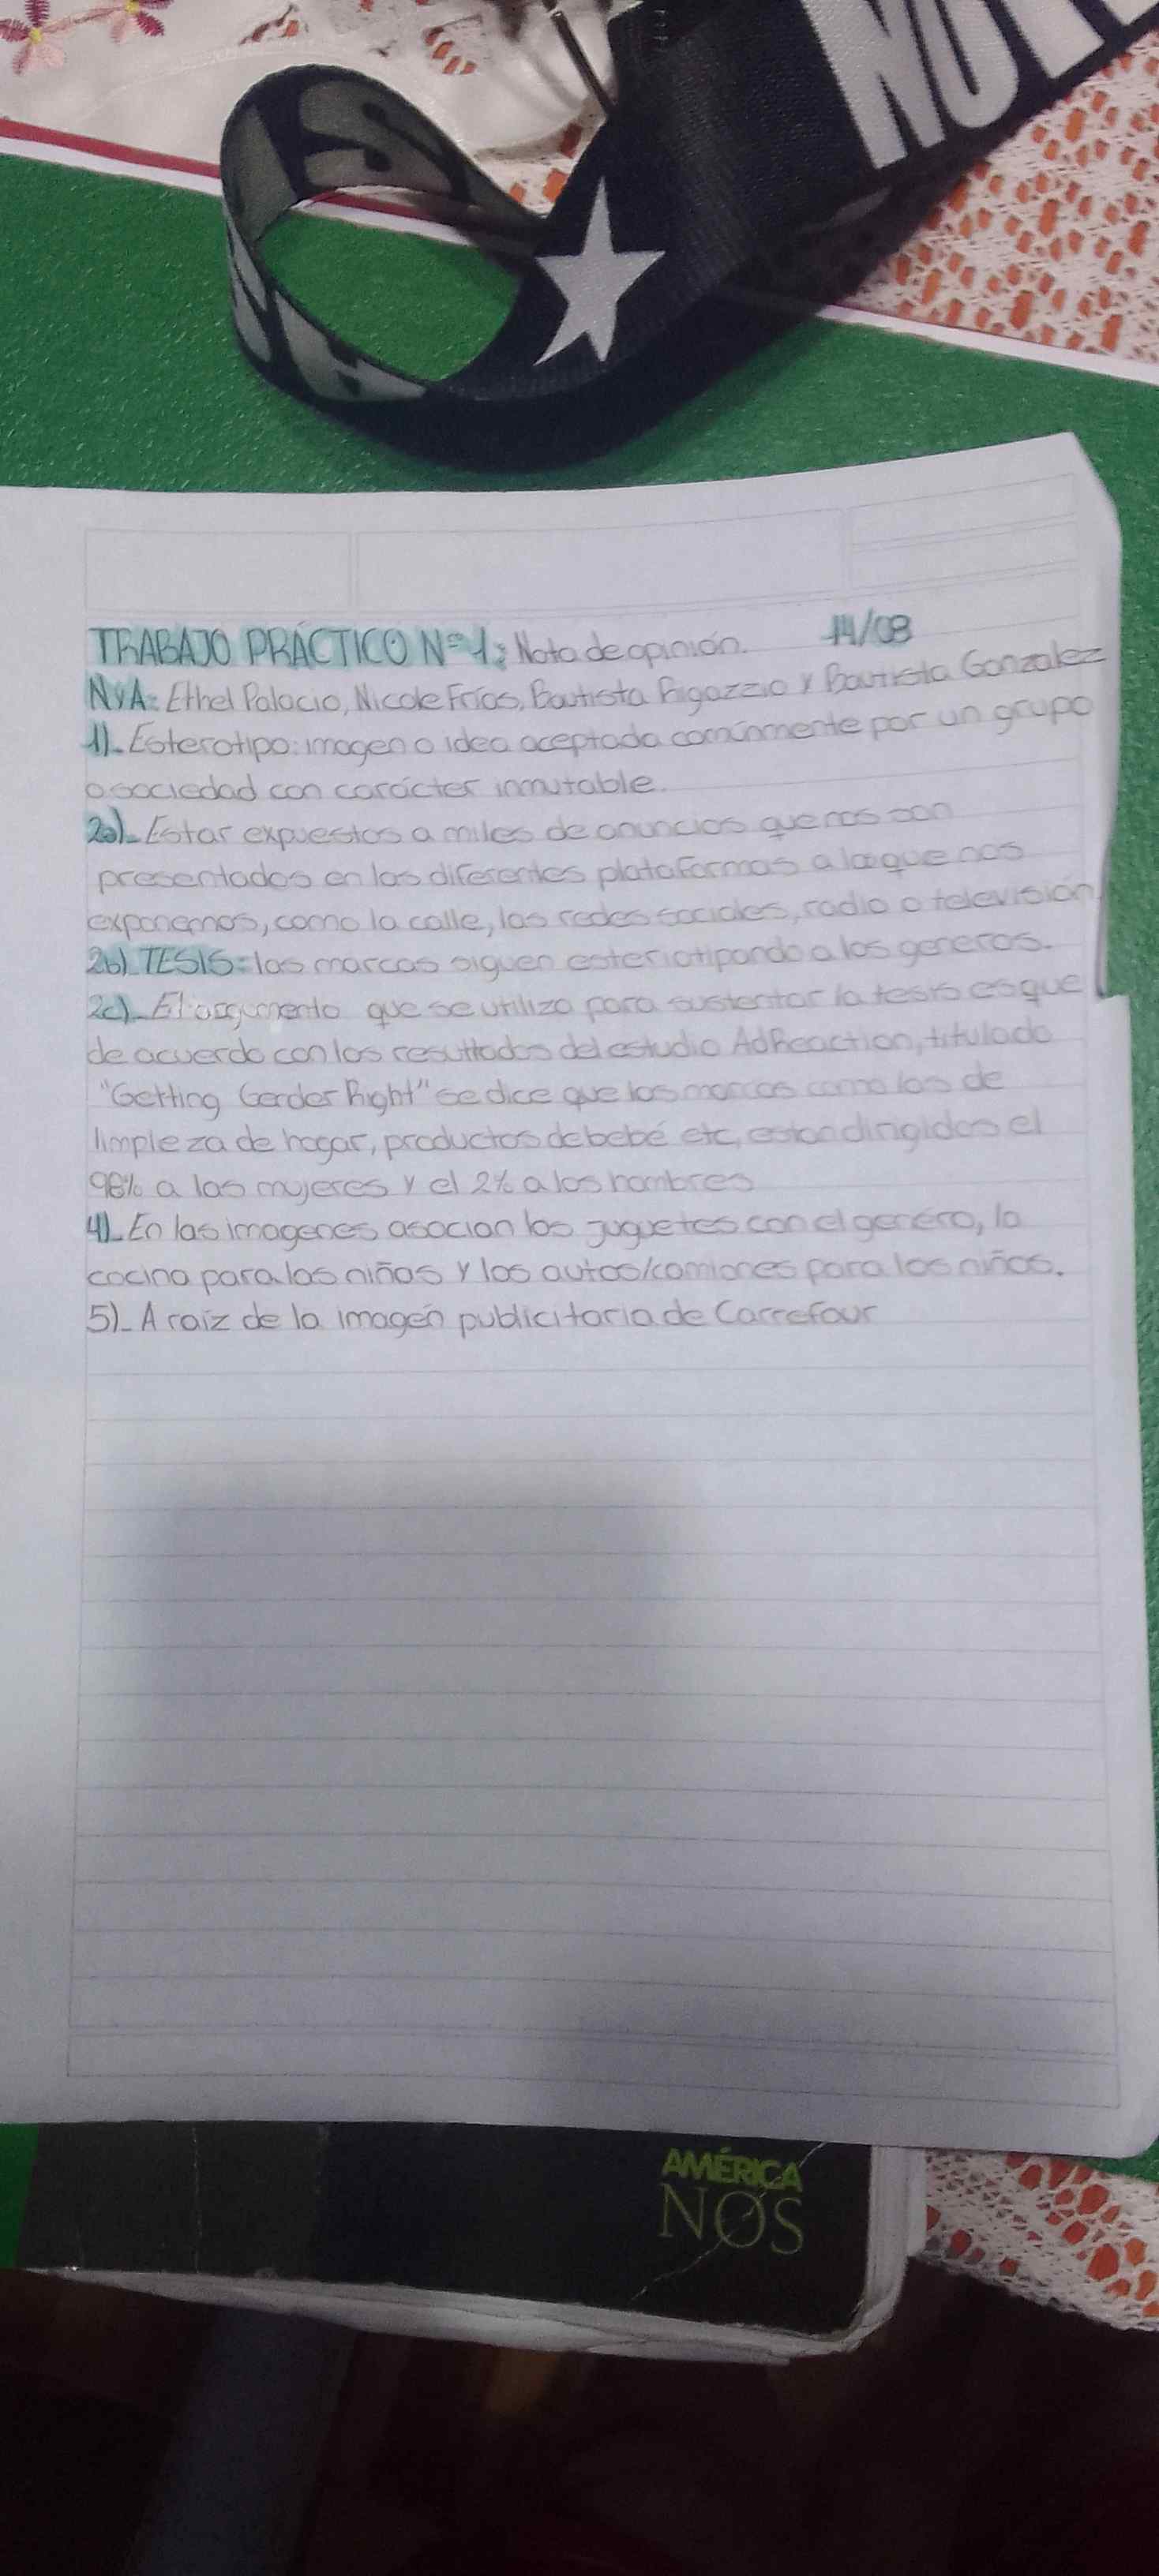 NO
TRABAJO PRÁCTICO N°1: Nota de opinión. 14/08
NyA: Ethel Palacio, Nicole Frías, Bautista Rigazzio y Bautista Gonzalez
1)_ Esterotipo: imagen o idea aceptada comúnmente por un grupo
o sociedad con carácter inmutable.
2a)_ Estar expuestos a miles de anuncios que nos son
presentados en las diferentes plataformas a las que nos
exponemos, como la calle, las redes sociales, radio o televisión
2b)_ TESIS: las marcas siguen esteriotipando a los generos.
2c)_ El argumento que se utiliza para sustentar la tesis es que
de acuerdo con los resultados del estudio AdReaction, titulado
"Getting Gerder Right" se dice que las marcas como las de
limpieza de hogar, productos de bebé etc, estan dirigidas el
98% a las mujeres y el 2% a los hombres
4)_ En las imagenes asocian los juguetes con el genéro, la
cocina para las niñas y los autos/camiones para los niños.
5)_ A raíz de la imagen publicitaria de Carrefour
AMÉRICA
NOS